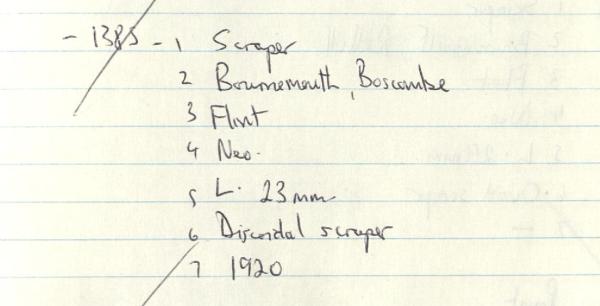 - 1385 - 1 Scraper
2 Bournemouth, Boscombe
3 Flint
4 Neo.
5 L. 23mm
6 Discoidal scraper
7 1920